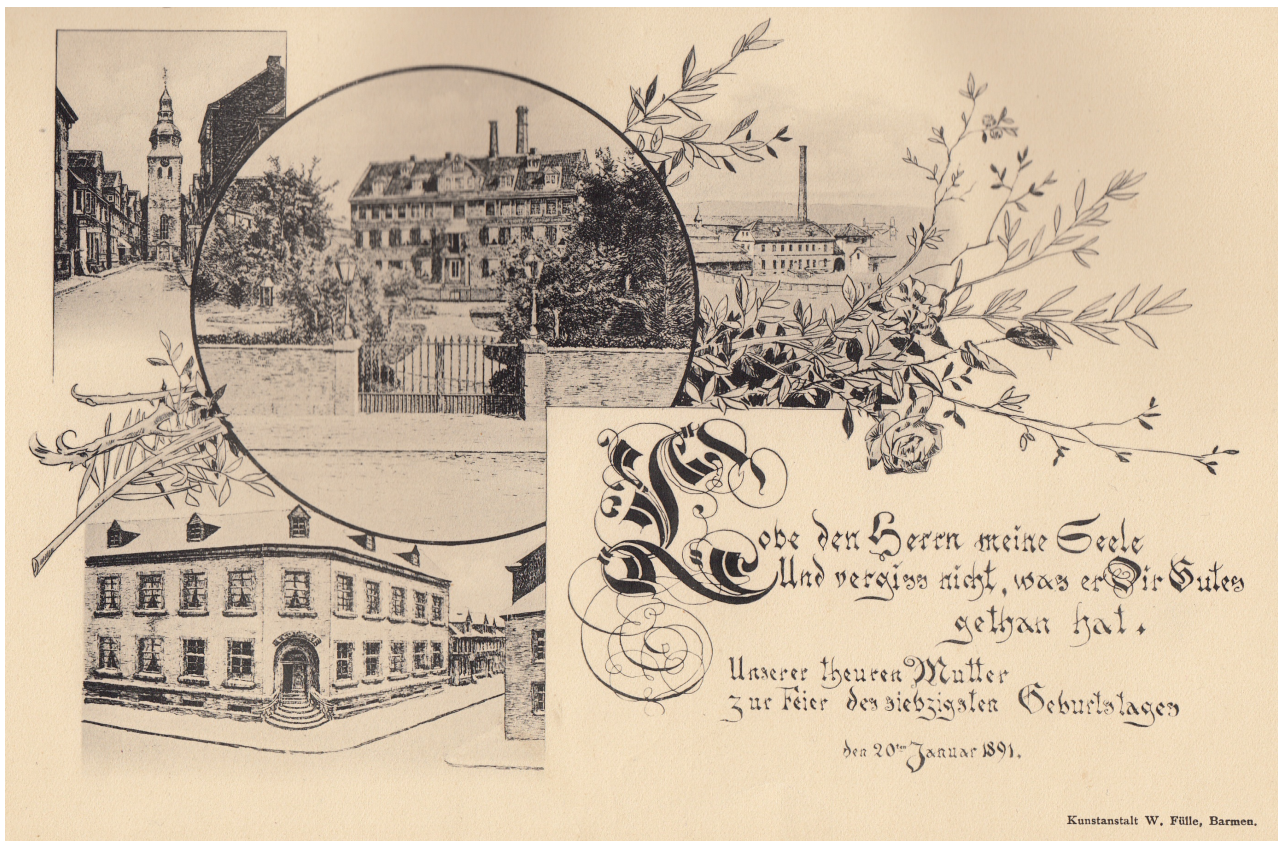 Lobe den Herrn meine Seele
Und vergiss nicht, was er Dir Gutes
gethan hat.
Unserer theuren Mutter
zur Feier des siebzigsten Geburtstages
den 20ten Januar 1891.
Kunstanstalt W. Fülle, Barmen.